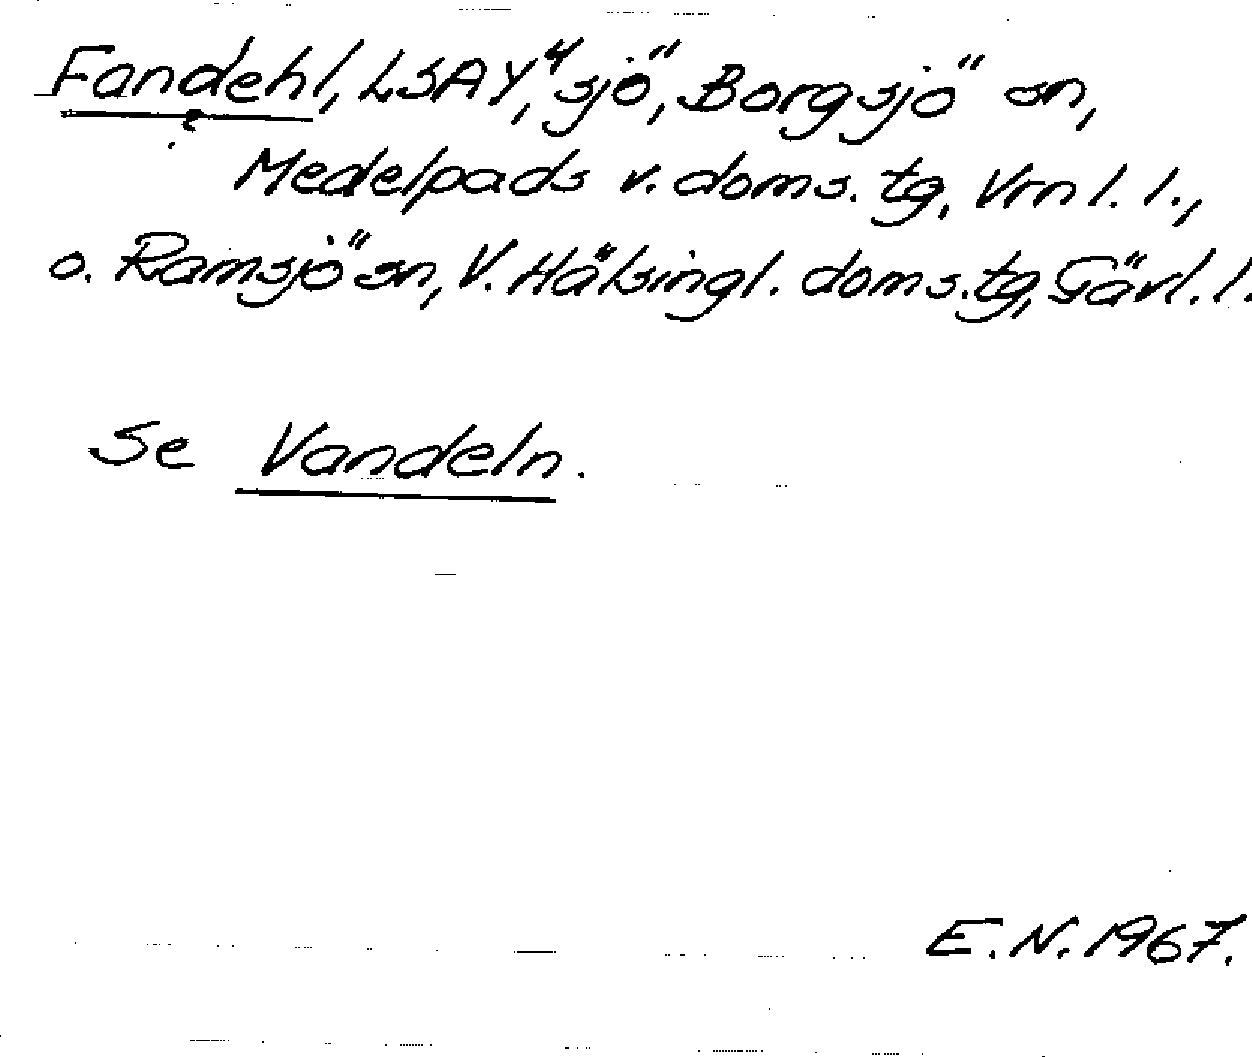 Fandehl, LSAY⁴, sjö, Borgsjö sn,
Medelpads v. doms. tg, Vrnl. l.,
o. Ramsjö sn, V. Hälsingl. doms. tg, Gävl. l.
Se Vandeln.
E. N. 1967.